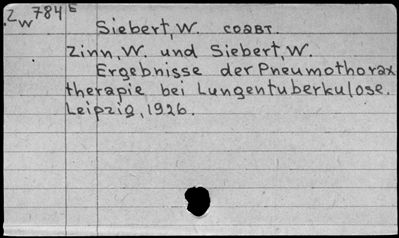 Zw 784 E
Siebert, W. соавт.
Zinn, W. und Siebert, W.
Ergebnisse der Pneumothorax
therapie bei Lungentuberkulose.
Leipzig, 1926.